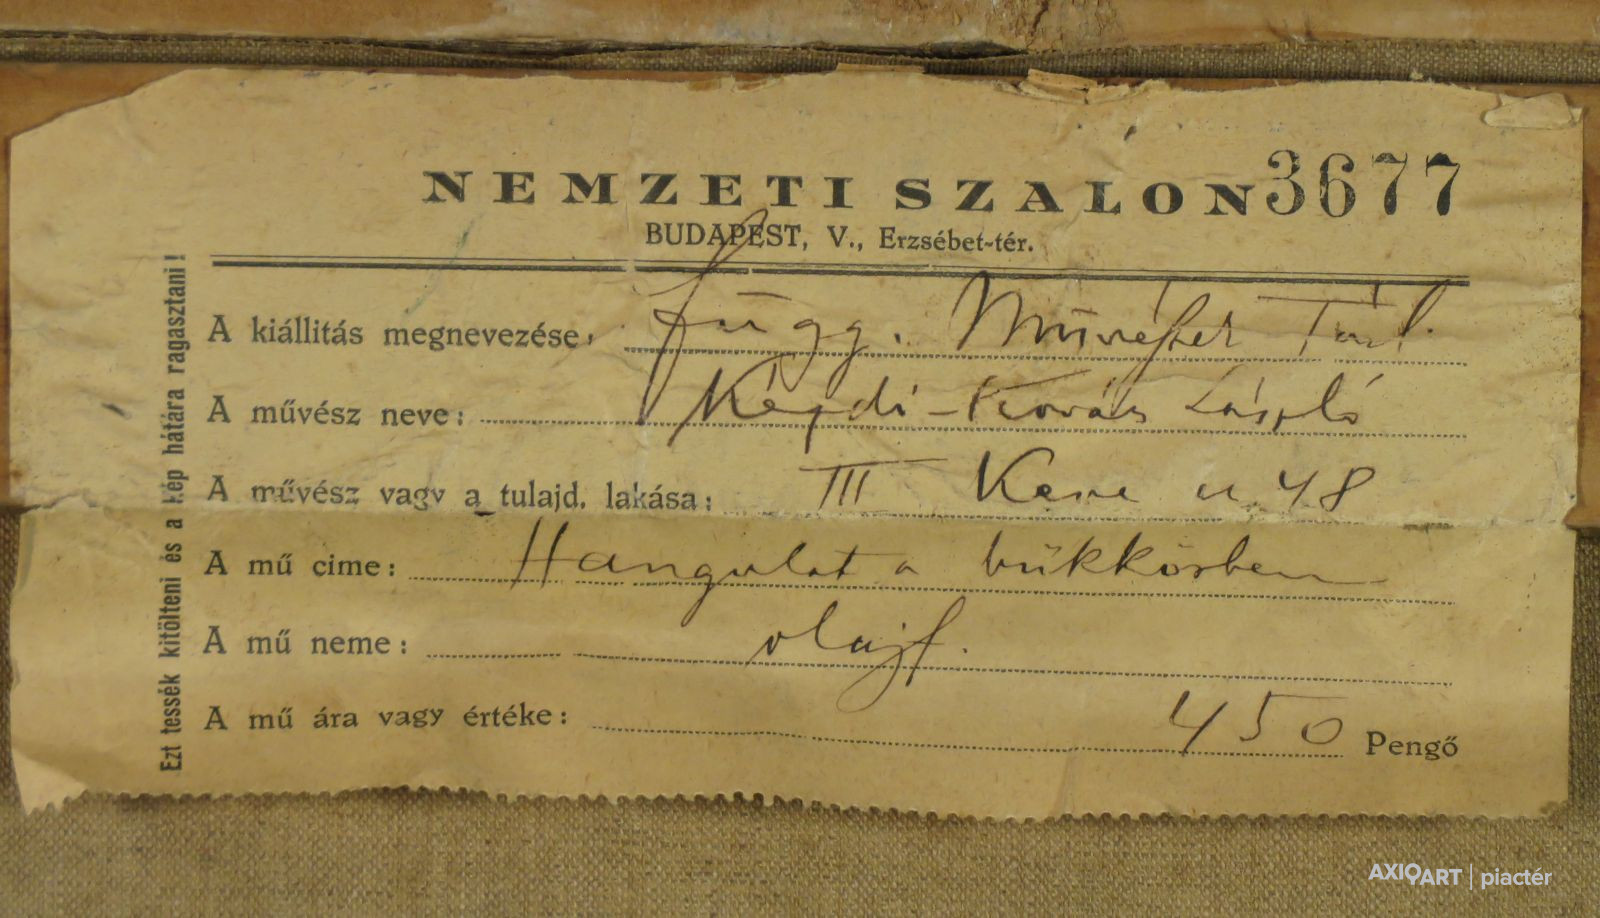 NEMZETI SZALON 3677
BUDAPEST, V., Erzsébet-tér.
A kiállitás megnevezése: Függ. Művészek Társ.
A művész neve: Kézdi-Kovács László
A művész vagy a tulajd. lakása: III u. 48
A mű cime: Hangulat a bükkösben
A mű neme: olajf.
A mű ára vagy értéke: 450 Pengő
Ezt tessék kitölteni és a kép hátára ragasztani!
AXIOART | piactér